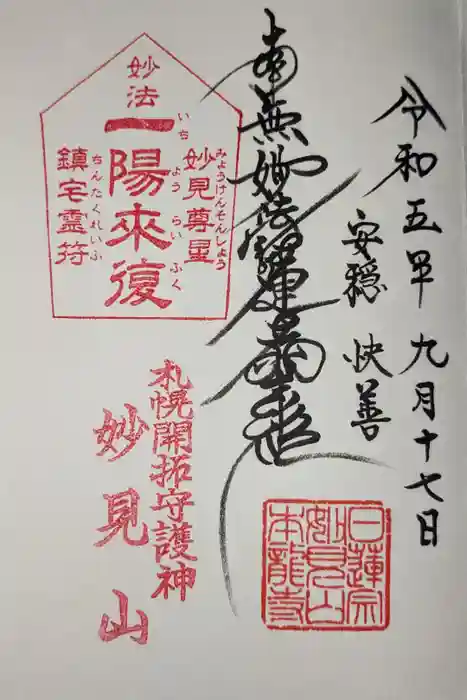 令和五年九月十七日
安穏 快善
南無妙法蓮華経
妙法
一陽来復
いちようらいふく
妙見尊星
みょうけんそんしょう
鎮宅霊符
ちんたくれいふ
札幌開拓守護神
妙見山
日蓮宗
妙見山
本龍寺